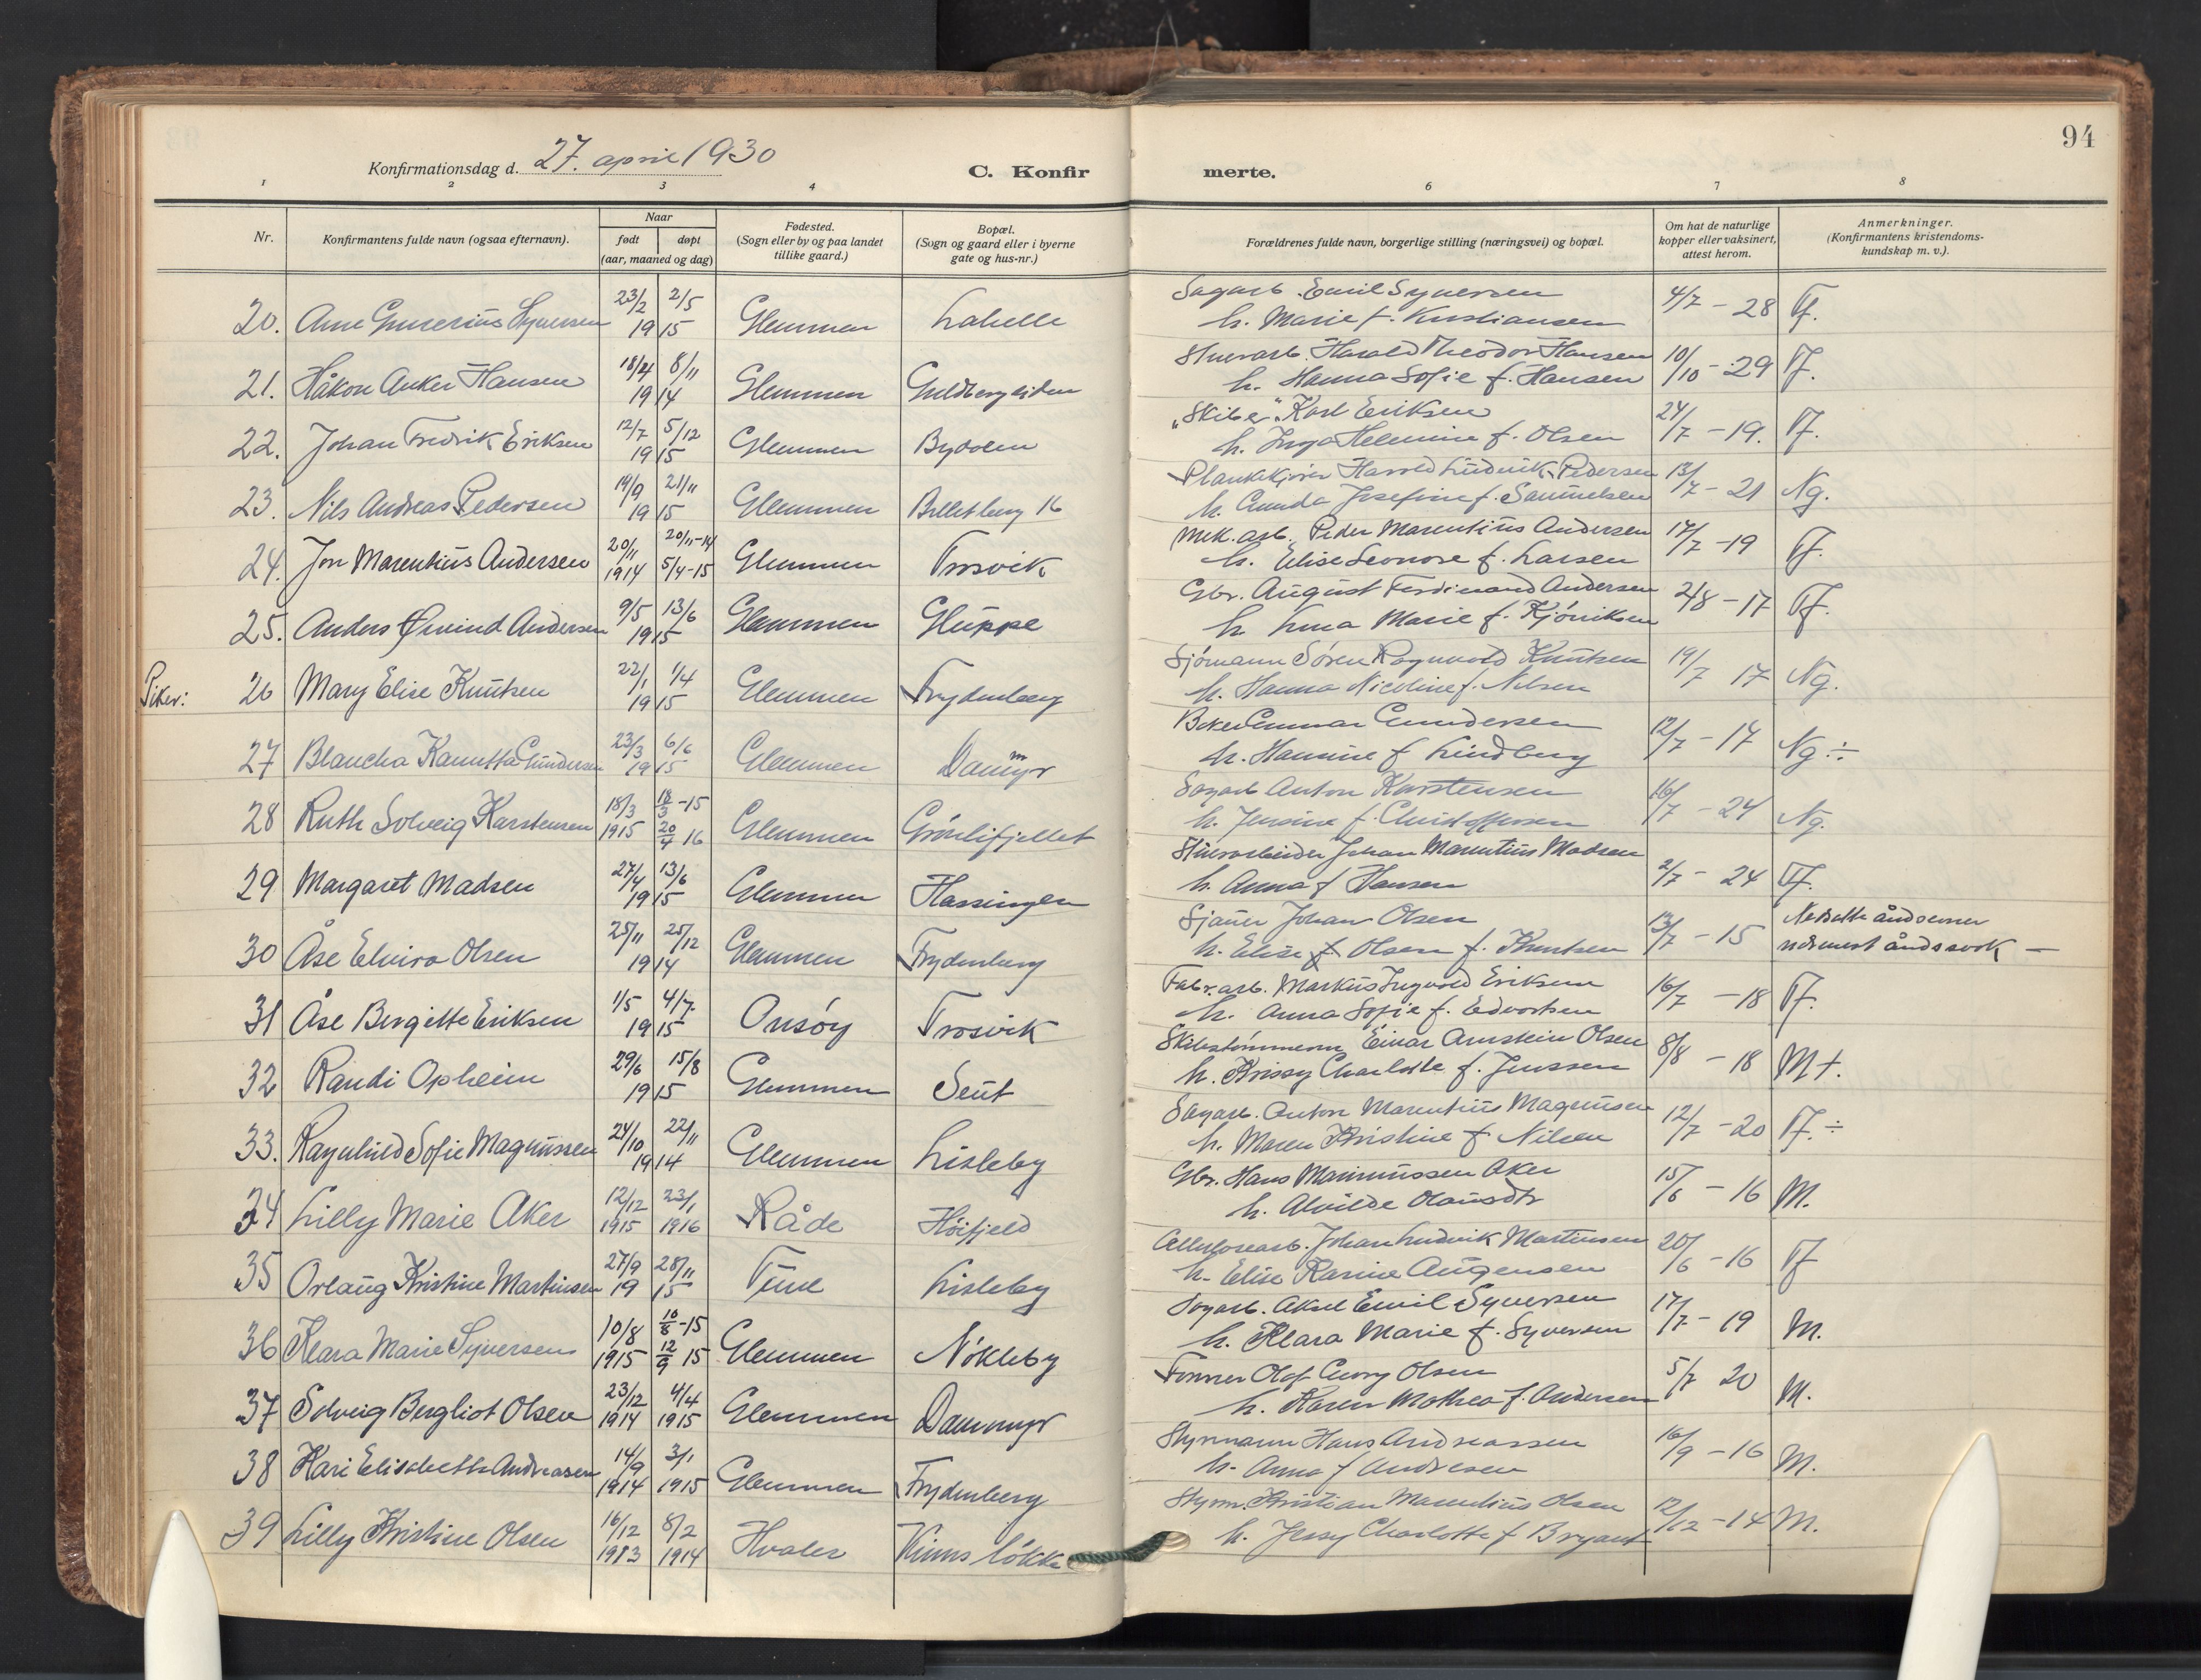 94
Konfirmationsdag d. 27. april 1930
C. Konfir merte.
1 2 3 4 6 7 8
Nr. | Konfirmantens fulde navn (ogsaa efternavn). | Naar født døpt (aar, maaned og dag) | Fødested. (Sogn eller by og paa landet tillike gaard.) | Bopæl. (Sogn og gaard eller i byerne gate og hus-nr.) | Forældrenes fulde navn, borgerlige stilling (næringsvei) og bopæl. | Om hat de naturlige kopper eller vaksinert, attest herom. | Anmerkninger. (Konfirmantens kristendoms-kundskap m. v.).
20. Syversen 23/2 2/5 1915 Glemmen Labelle Sagarb. Emil Syversen
h. Marie f. Kristiansen 4/7 - 28 Tf.
21. Håkon Anker Hansen 18/4 8/11 1914 Glemmen Guldbergsiden Stuerarb. Harald Theodor Hansen
h. Hanna Sofie f. Hansen 10/10 - 29 Tf.
22. Johan Fredrik Eriksen 12/7 5/12 1915 Glemmen Bydalen Karl Eriksen
h. Inga Helemine f. Olsen 24/7 - 19. Tf.
23. Nils Andreas Pedersen 19/9 21/11 1915 Glemmen 16 Plankekjører Harold Ludvik Pedersen
h. Josefine f. Samuelsen 13/7 - 21 Ng.
24. Jon Marentius Andersen 20/11 1914 20/11-14 5/4-15 Glemmen Trosvik Mek. arb. Peder Marentius Andersen
h. Elise Leonore f. Larsen 17/7 - 19 Tf.
25. Anders Øivind Andersen 9/5 13/6 1915 Glemmen Gluppe Gbr. August Ferdinand Andersen
h. Marie f. 2/8 - 17 Tf.
Piker:
26 Mary Elise Knutsen 22/1 1/4 1915 Glemmen Frydenberg Sjømann Søren Ragnvald Knutsen
h. Hanna Nicoline f. Nilsen 19/7 17 Ng.
27 Blancha Gundersen 23/3 6/6 1915 Glemmen Dammyr Gunnar Gundersen
h. Hansine f Lindberg 12/7 - 14 Ng ÷
28 Ruth Solveig Karstensen 18/3 1915 18/3-15 20/4 16 Glemmen Grønlifjellet Sagarb Anton Karstensen
h. Jensine f. Christoffersen 16/7 - 24 Ng.
29 Margaret Madsen 27/4 13/6 1915 Glemmen Hassingen Stuerarbeider Johan Marentius Madsen
h. Anna f Hansen 2/7 - 24 Tf.
30 Åse Elvira Olsen 25/11 25/12 1914 Glemmen Frydenberg Sjauer Johan Olsen
h. Elise f Olsen f. Knutsen 13/7 - 15 Nedsatte åndsevner
nærmest åndssvak —
31 Åse Bergitte Eriksen 1/5 4/7 1915 Onsøy Trosvik Fabr. arb. Markus Ingvald Eriksen
h. Anna Sofie f. Edvartsen 16/7 - 18 Tf.
32 Randi Opheim 29/6 15/8 1915 Glemmen Seut Skibstømmerm Einar Arnstein Olsen
h. Krissy Charlotte f. Jenssen 8/8 - 18 M +.
33. Ragnhild Sofie Magnussen 24/10 22/11 1914 Glemmen Lisleby Sagarb. Anton Marentius Magnussen
h. Maren Kristine f Nilsen 12/7 - 20 Tf. ÷
34 Lilly Marie Aker 12/12 1915 23/1 1916 Råde Høifjeld Gbr. Hans Aker
h. Alvilde Olausdtr 15/6 - 16 M.
35 Orlaug Kristine Martinsen 27/9 28/11 1915 Tune Lisleby Cellulosearb. Johan Ludvik Martinsen
h. Elise Augensen 20/6 - 16 Tf
36 Klara Marie Syversen 10/8 1915 10/8-15 12/9 15 Glemmen Nøkleby Sagarb. Aksel Emil Syversen
h. Klara Marie f. Syversen 17/7 - 19 M.
37 Solveig Bergliot Olsen 23/12 1914 4/4 1915 Glemmen Dammyr Former Olaf Georg Olsen
h. Karen Mathea f. Andersen 5/7 20 M.
38 Kari Elisabeth Andreasen 14/9 1914 3/1 1915 Glemmen Frydenberg Styrmann Hans Andreassen
h. Anna f Andresen 16/9 - 16 M.
39 Lilly Kristine Olsen 16/12 1983 8/2 1914 Hvaler løkke Styrm. Kristian Marentius Olsen
h. Jessy Charlotte f Bryant 12/12 - 14 M.